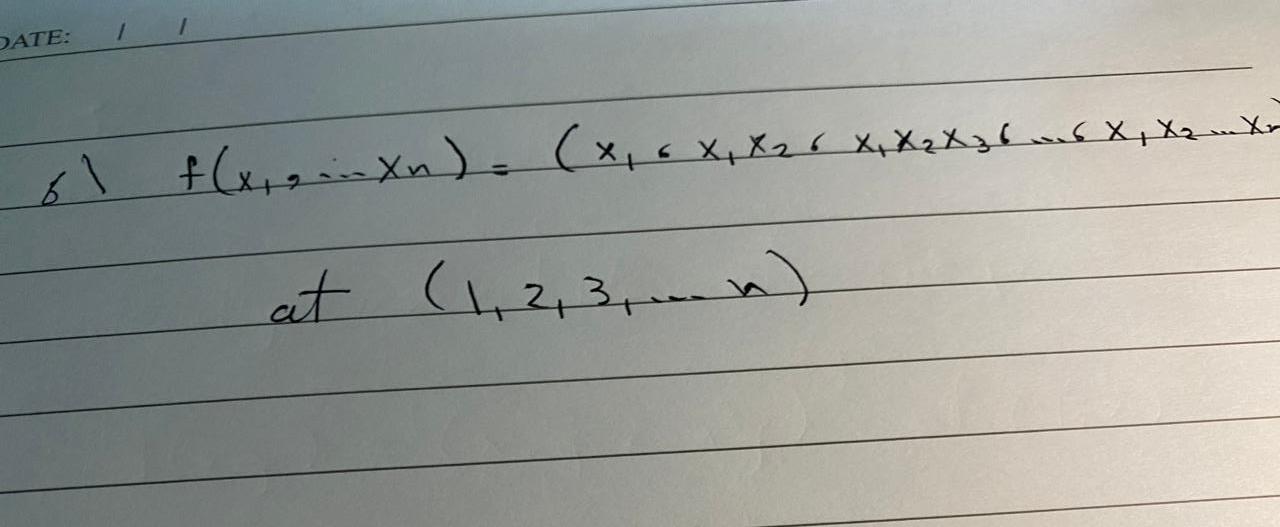 DATE: / /
6\ f(x₁, ... xₙ) = (x₁ , x₁x₂ , x₁x₂x₃ , ... , x₁x₂...xₙ)
at (1, 2, 3, ... n)